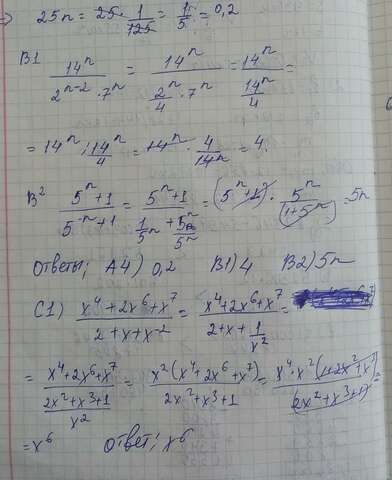 ⇒ 25n = 25 · 1/125 = 1/5 = 0,2
B1
14ⁿ/(2ⁿ⁻² · 7ⁿ) = 14ⁿ/(2ⁿ/4 · 7ⁿ) = 14ⁿ/(14ⁿ/4) =
= 14ⁿ : 14ⁿ/4 = 14ⁿ · 4/14ⁿ = 4.
B2 (5ⁿ+1)/(5⁻ⁿ+1) = (5ⁿ+1)/(1/5ⁿ + 5ⁿ/5ⁿ) = (5ⁿ+1) · 5ⁿ/(1+5ⁿ) = 5ⁿ
Ответы; А4) 0,2 B1) 4 B2) 5ⁿ
C1) (x⁴+2x⁶+x⁷)/(2+x+x⁻²) = (x⁴+2x⁶+x⁷)/(2+x+1/x²) =
= (x⁴+2x⁶+x⁷)/((2x²+x³+1)/x²) = x²(x⁴+2x⁶+x⁷)/(2x²+x³+1) = x⁴·x²(1+2x²+x³)/(2x²+x³+1) =
= x⁶ Ответ; x⁶